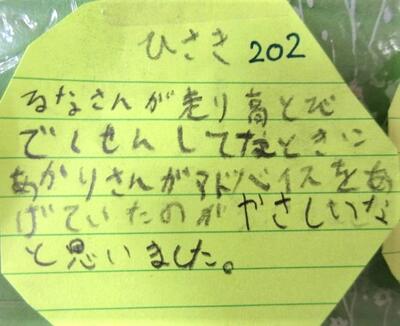 ひさき 202
るなさんが走り高とび
でくせんしてたときに
あかりさんがアドバイスをあ
げていたのが やさしいな
と思いました。